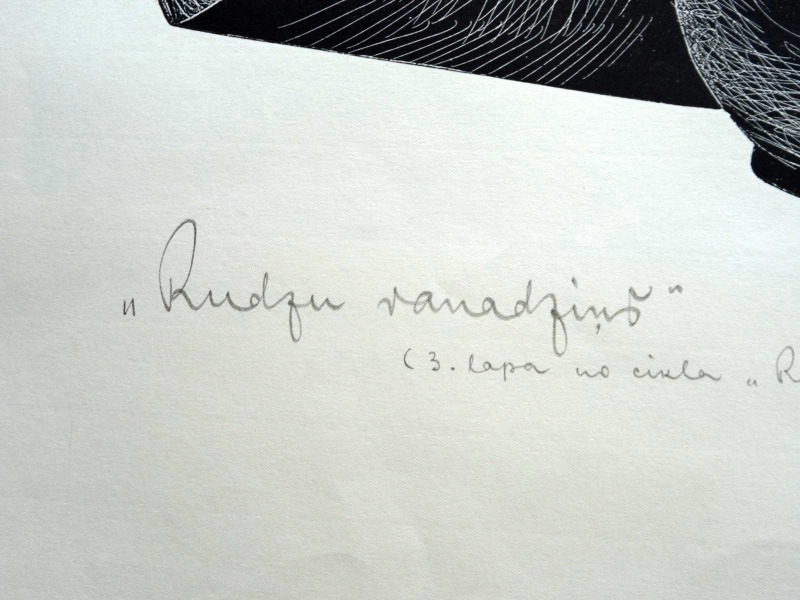 „Rudzu vanadziņš"
(3. lapa no cikla „R